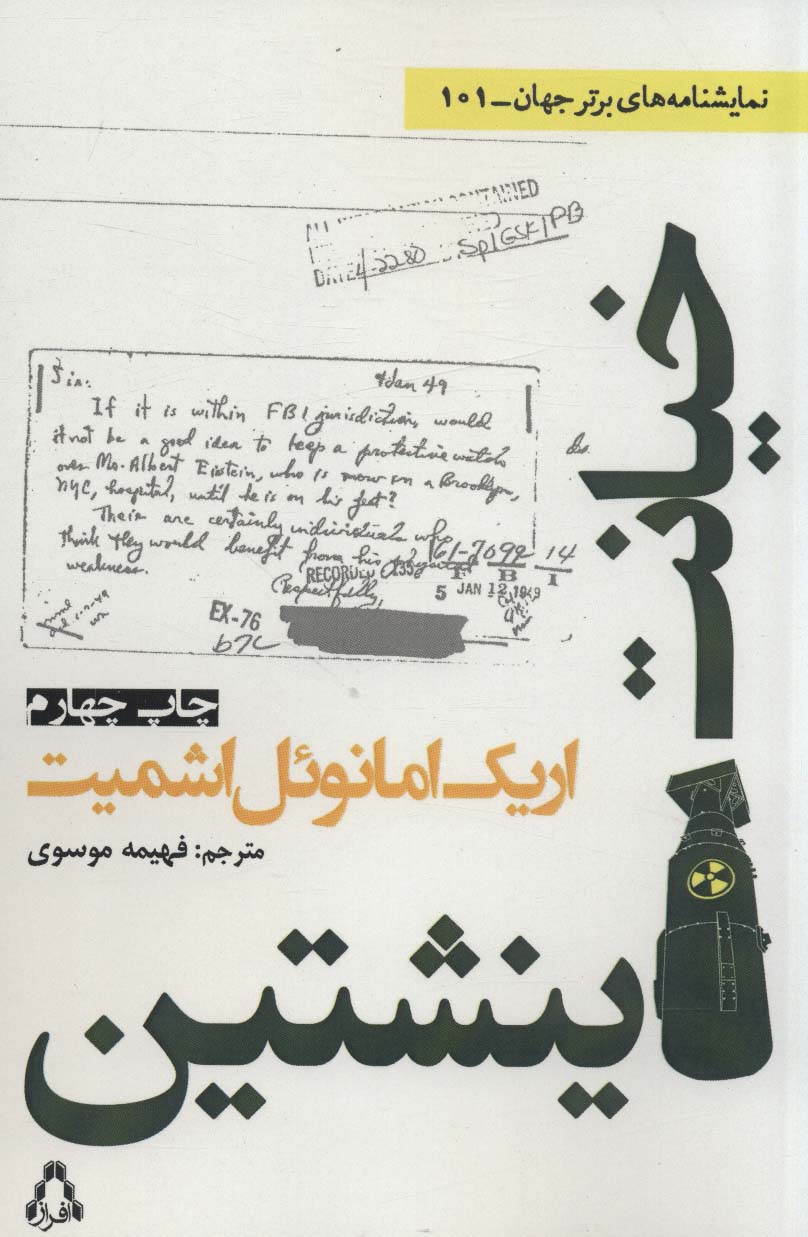 نمایشنامه‌های برتر جهان_۱۰۱
CONTAINED
DATE 4-22-80 Sp1GSK/PB
Sir:
4 Jan 49
If it is within FBI jurisdiction, would
it not be a good idea to keep a protective watch
over Mr. Albert Eistein, who is now in a Brooklyn,
NYC, hospital, until he is on his feet?
Their are certainly individuals who
think they would benefit from his
weakness.
61-7099 14
F B I
RECORDED
Respectfully,
5 JAN 12 1949
EX-76
b7C
خیانت
چاپ چهارم
اریک امانوئل اشمیت
مترجم: فهیمه موسوی
اینشتین
افراز